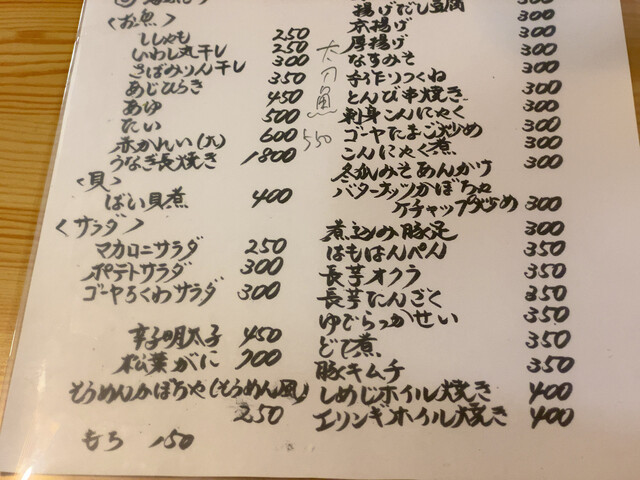 〈お魚〉
ししゃも 250
いわし丸干し 250
さばみりん干し 300
あじひらき 350
あゆ 450
たい 500
赤かれい(大) 600
うなぎ長焼き 1800
太刀魚 550
〈貝〉
ばい貝煮 400
〈サラダ〉
マカロニサラダ 250
ポテトサラダ 300
ゴーヤちくわサラダ 300
辛子明太子 450
松葉がに 700
そうめんかぼちゃ(そうめん風) 250
もち 150
揚げだし豆腐
本揚げ 300
厚揚げ 300
なすみそ 300
手作りつくね 300
とんび串焼き 300
刺身こんにゃく 300
ゴーヤたまご炒め 300
こんにゃく煮 300
冬瓜みそあんかけ 300
バターナッツかぼちゃ
ケチャップ炒め 300
煮込み豚足 300
はもはんぺん 350
長芋オクラ 350
長芋たんざく 350
ゆでらっかせい 350
どて煮 350
豚キムチ 350
しめじホイル焼き 400
エリンギホイル焼き 400